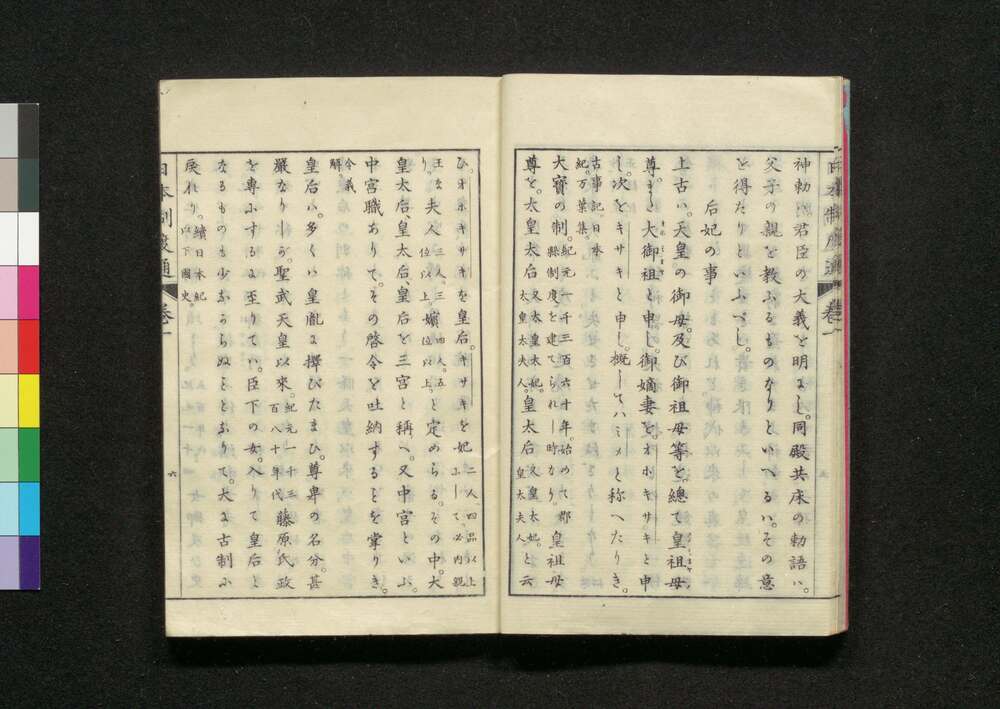 神勅ハ君臣の大義を明にし。同殿共床の勅語ハ。
父子の親を教ふるものなりといへるハ。その意
を得たりといふべし。
后妃の事
上古ハ。天皇の御母。及び御祖母等を。總て皇祖母
尊。また大御祖とも申し。御嫡妻を。オホキサキと申
し。次をキサキと申し。概してハミメと称へたりき。
古事記。日本紀。万葉集。
大寶の制。紀元一千三百六十年。始めて郡縣制度を建てられし時なり。皇祖母
尊を。太皇太后又太皇太妃。太皇太夫人。皇太后又皇太妃。皇太夫人。と云
ひ。オホキサキを皇后。キサキを妃二人。四品以上にして。必内親
王な り。夫人三人。三位以上。嬪四人。五位以上。と定めらる。その中。太
皇太后、皇太后、皇后を三宮と稱へ。又中宮といふ。
中宮職ありて。その啓令を吐納することを掌りき。
令義解
皇后ハ。多くハ皇胤に擇びたまひ。尊卑の名分。甚
嚴なりしが。聖武天皇以來。紀元一千三百八十年代藤原氏政
を專ふするに至りてハ。臣下の女。入りて皇后と
なるもの も少からぬことなりて。大に古制に
戻れり。續日本紀以下國史。
日本制度通 卷一
六